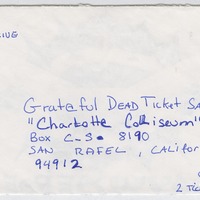 Grateful Dead Ticket Sa
"Charlotte Colliseum"
Box C-S. 8190
San Rafel, Califor
94912
2 Tic